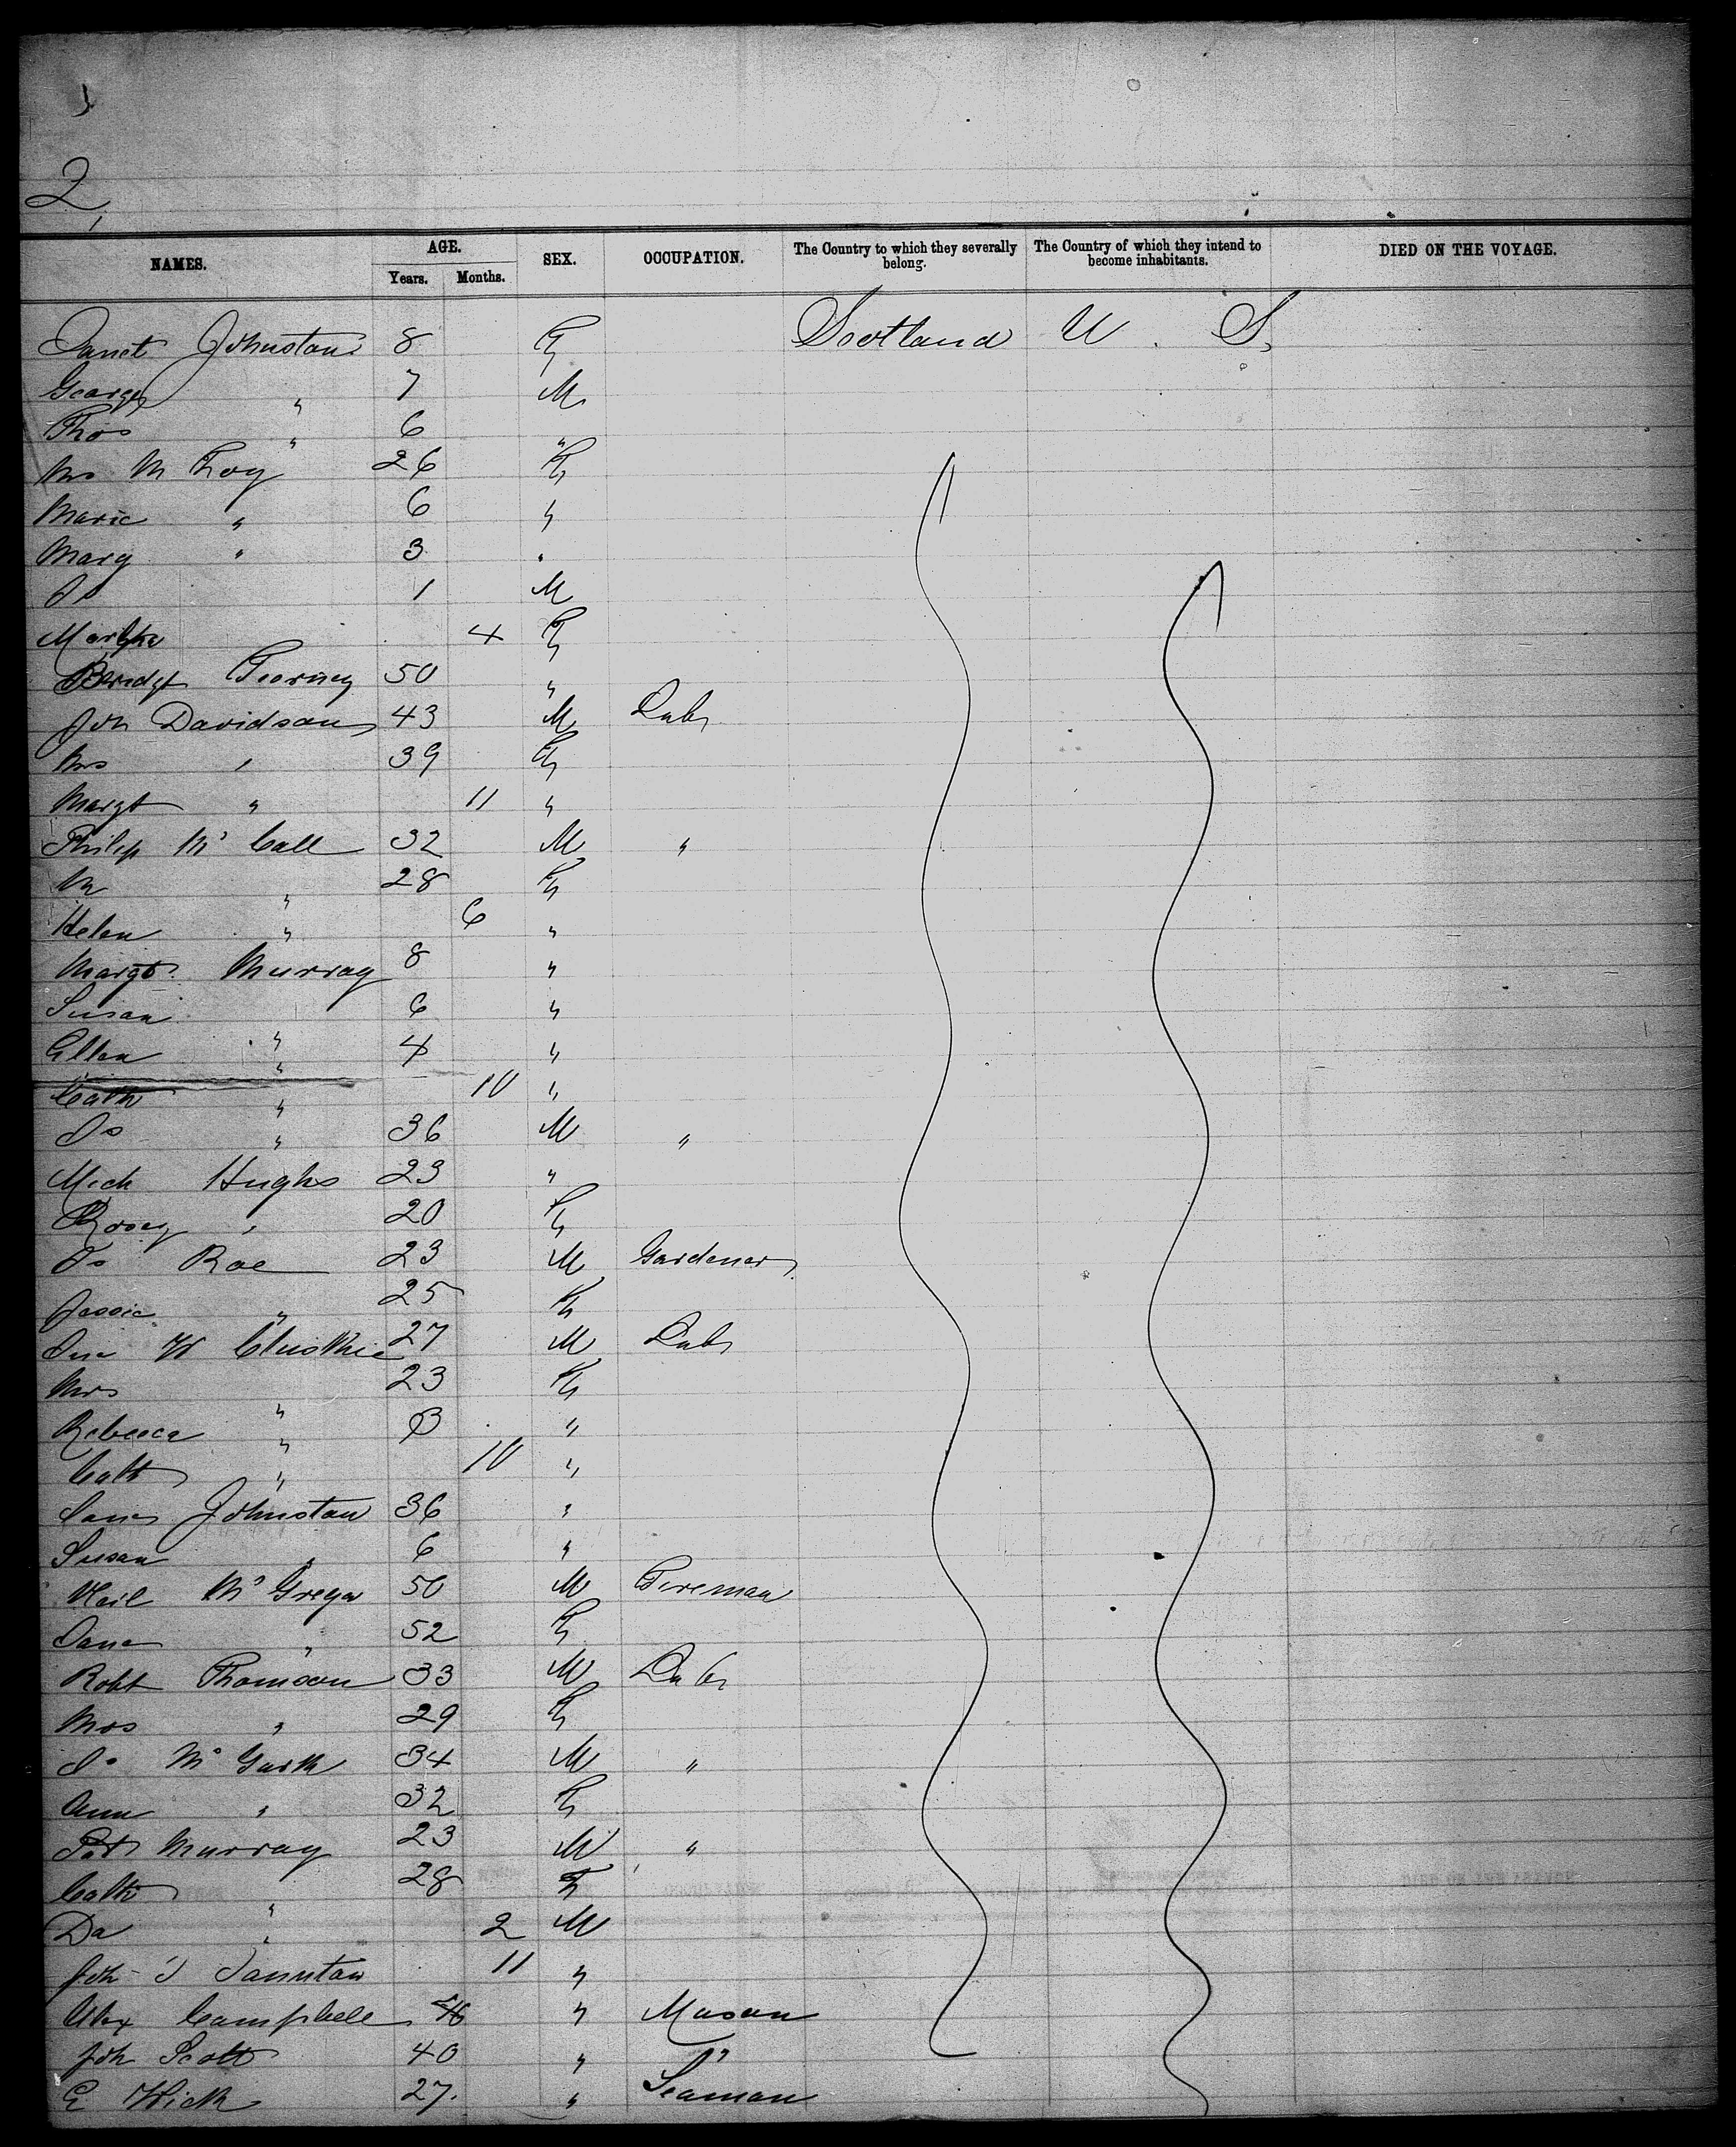 2
NAMES. AGE. SEX. OCCUPATION. The Country to which they severally belong. The Country of which they intend to become inhabitants. DIED ON THE VOYAGE.
Years. Months.
Janet Johnston 8 F Scotland U. S.
George " 7 M
Thos " 6 "
Mrs M 26 F
Marie " 6 "
Mary " 3 "
Js 1 M
Martha 4 F
Bridgt 50 "
Joh Davidson 43 M Labr
Mrs " 39 F
Margt " 11 "
Philip Mc Call 32 M "
M " 28 F
Helen " 6 "
Margt Murray 8 "
Susan " 6 "
Ellen " 4 "
Cath " 10 "
Js " 36 M "
Mich Hughs 23 "
Rosey " 20 F
Js Rae 23 M Gardener
Jessie " 25 F
27 M Labr
Mrs " 23 F
Rebecca " 3 "
Cath " 10 "
Johnston 36 "
Susan " 6 "
Neil Mc Gregor 50 M Fireman
Jane " 52 F
Robt Thomson 33 M Labr
Mrs " 29 F
Js Mc Gurk 34 M "
Ann " 32 F
Pat Murray 23 M "
Cath " 28 F
Da " 2 M
Joh 11 "
Alex Campbell "  Mason
Joh Scott 40 " "
E Hick 27. " Seaman